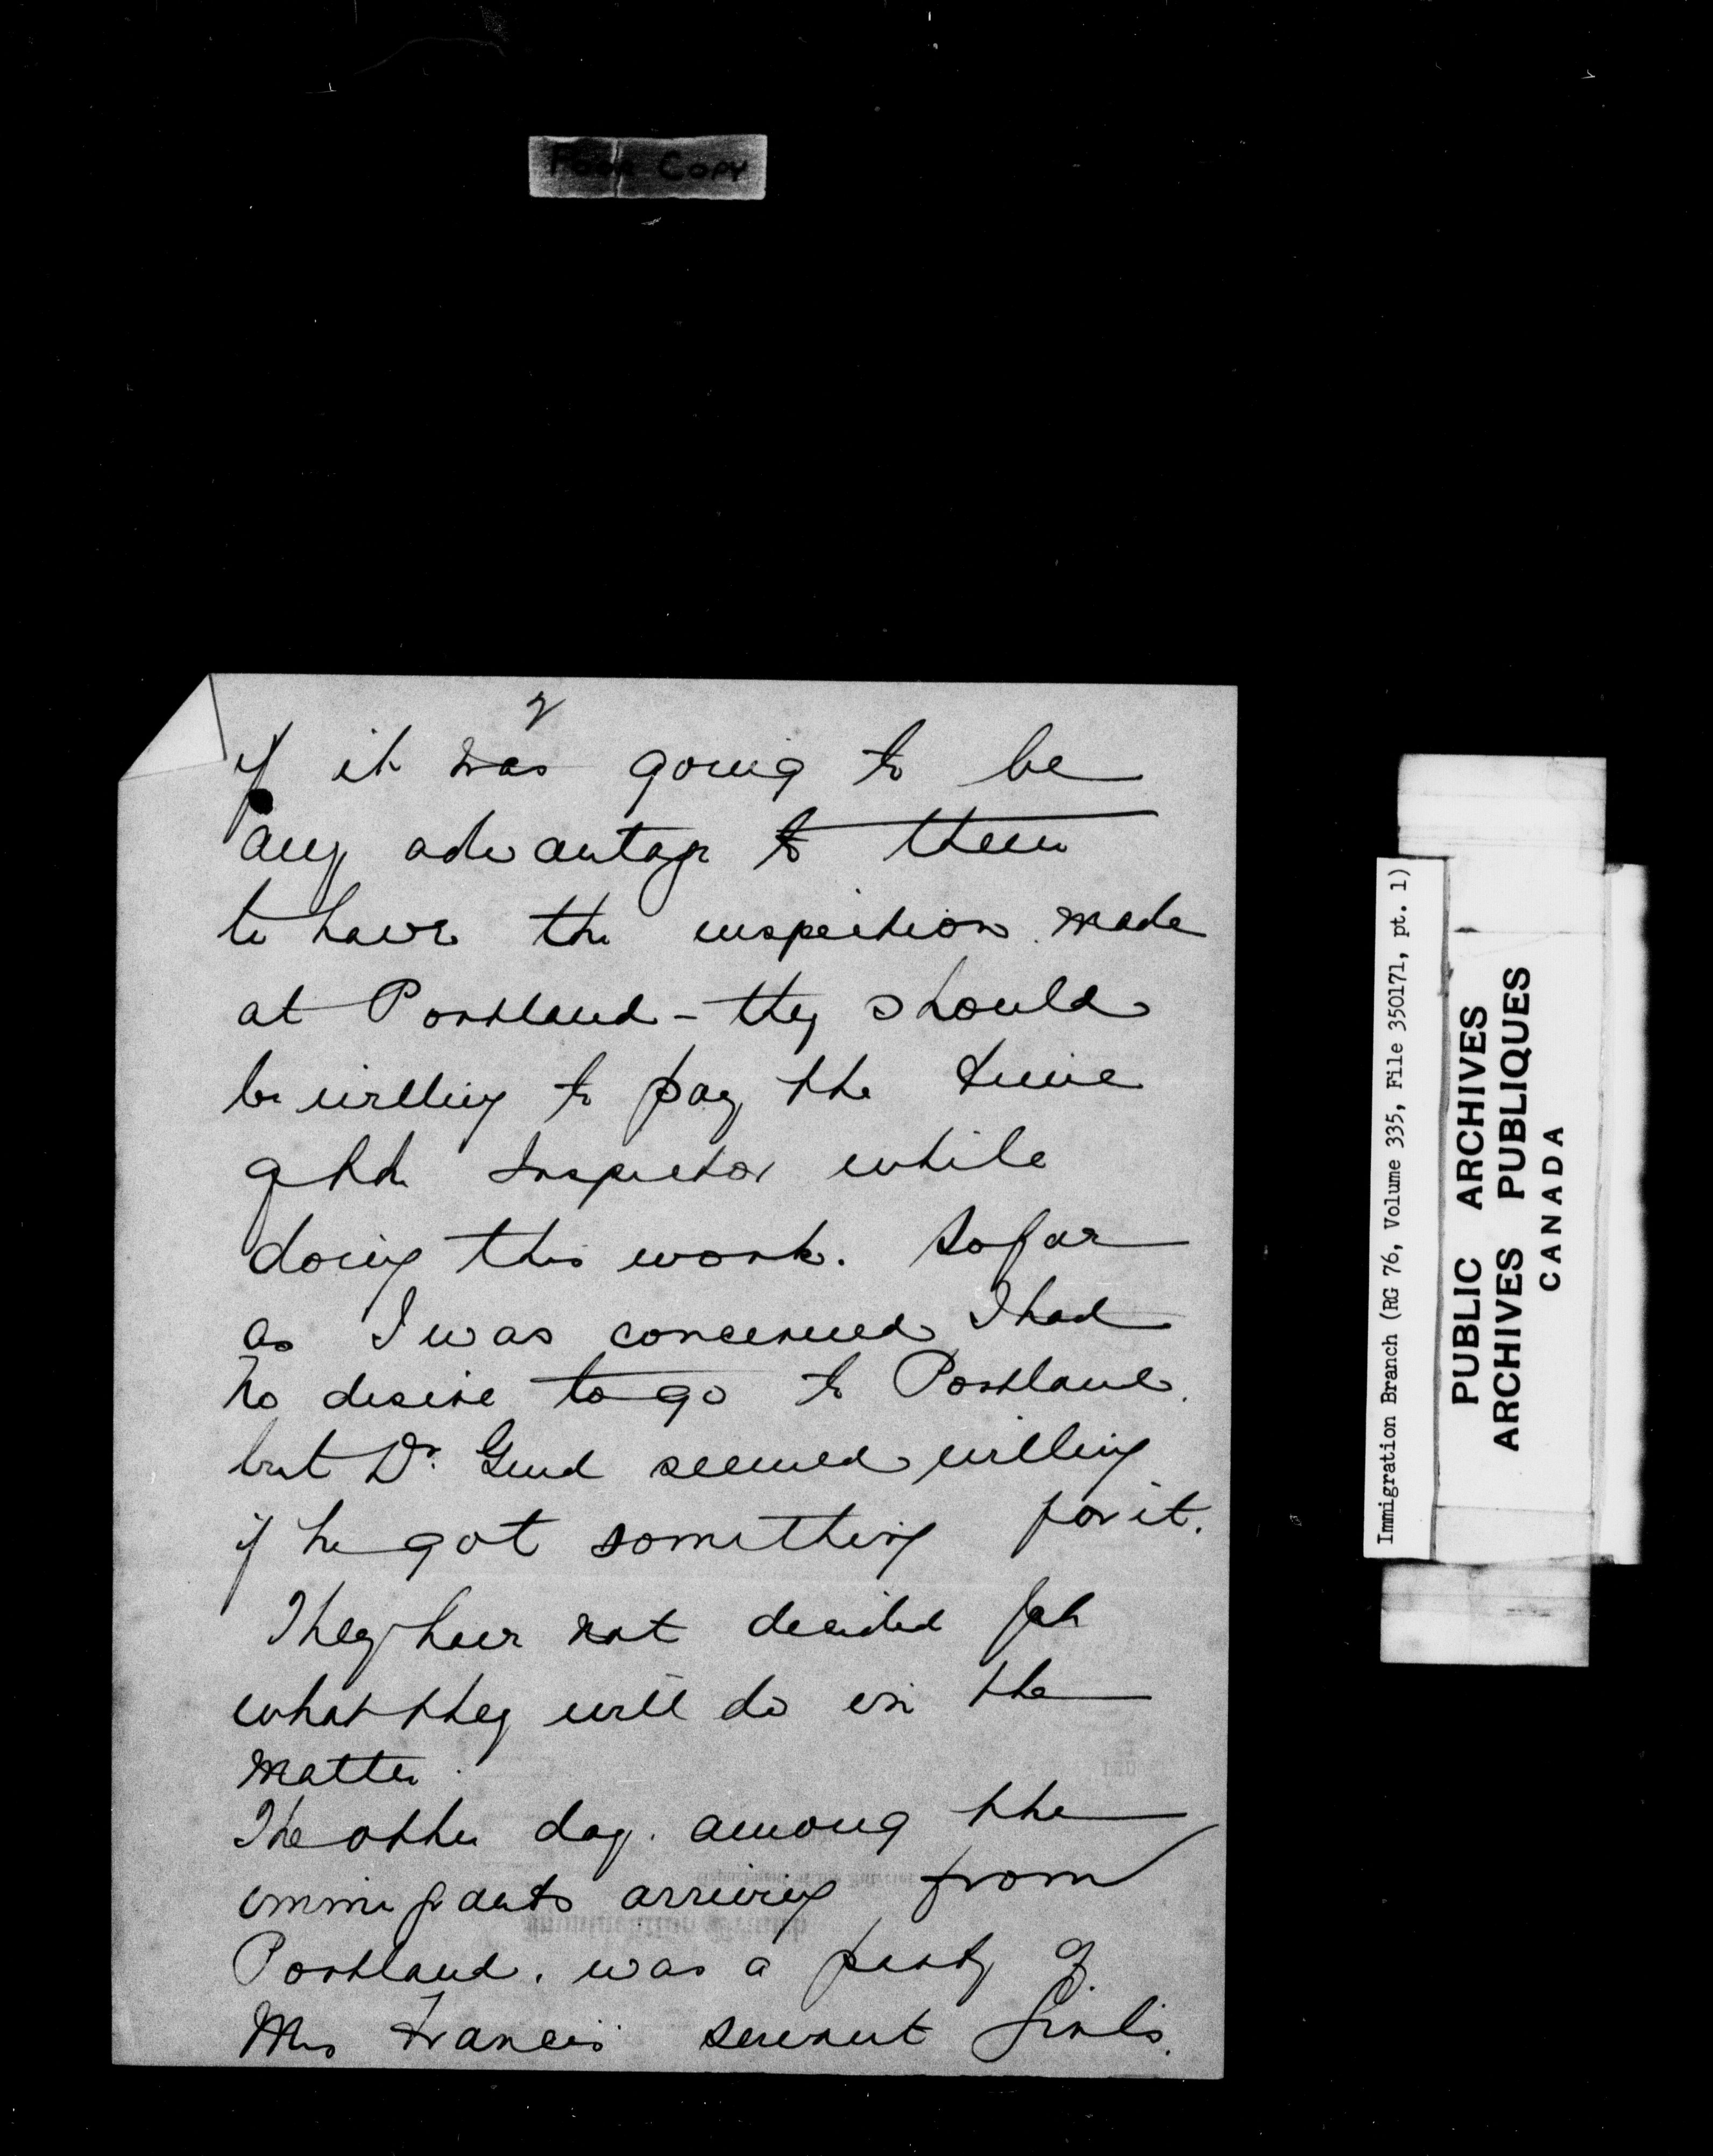 Poor Copy
2
if it was going to be
any advantage to them
to have the inspection made
at Portland - they should
be willing to pay the time
of the Inspector while
doing this work. So far
as I was concerned I had
no desire to go to Portland.
but Dr. seemed willing
if he got something for it.
They have not decided yet
what they will do in the
matter.
The other day. among the
immigrants arriving from
Portland. was a party of
Mrs Francis' servant Girls.
Immigration Branch (RG 76, Volume 335, File 350171, pt. 1)
PUBLIC ARCHIVES
ARCHIVES PUBLIQUES
CANADA